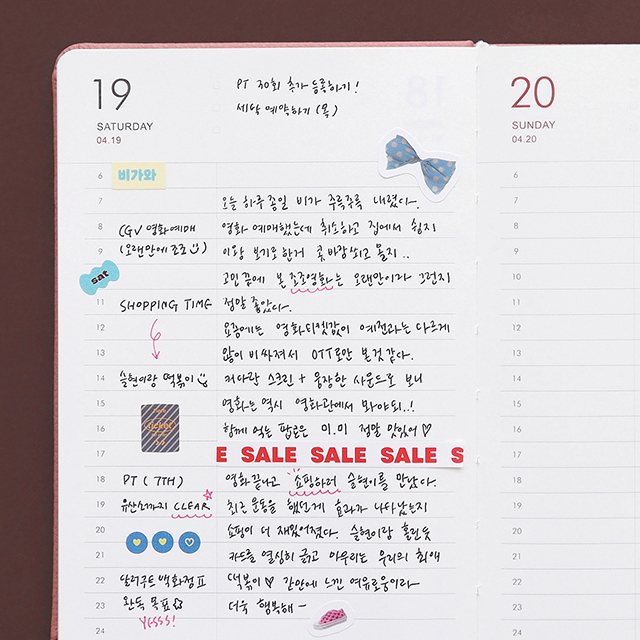 19
SATURDAY
04.19
PT 30회 추가 등록하기!
세탁 예약하기 (목)
6
비가와
7
오늘 하루종일 비가 주륵주륵 내렸다.
8
CGV 영화예매
영화 예매했는데 취소하고 집에서 쉴지
9
(오랜만에 조조
이왕 보기로한거 콧바람쐬고 올지..
sat
고민 끝에 본 조조영화는 오랜만이라 그런지
11
SHOPPING TIME
정말 좋았다.
12
요즘에는 영화티켓값이 예전과는 다르게
13
많이 비싸져서 OTT로만 볼것같다.
14
슬현이랑 떡볶이
커다란 스크린 + 웅장한 사운드로 보니
15
영화는 역시 영화관에서 봐야돼..!
16
함께 먹는 팝콘은 이.이 정말 맛있어♡
17
E SALE SALE SALE S
18
PT (7TH)
영화끝나고 쇼핑하러 슬현이를 만났다.
19
유산소까지 CLEAR
최근 운동을 했던게 효과가 나타났는지
20
쇼핑이 더 재밌어졌다. 슬현이랑 홀린듯
21
카드를 열심히 긁고 마무리는 우리의 최애
22
달러구트 백화점
떡볶이♡ 간만에 느낀 여유로움이라
23
완독 목표
더욱 행복해~
YESSS!
24
20
SUNDAY
04.20
6
7
8
9
10
11
12
13
14
15
16
17
18
19
20
21
22
23
24